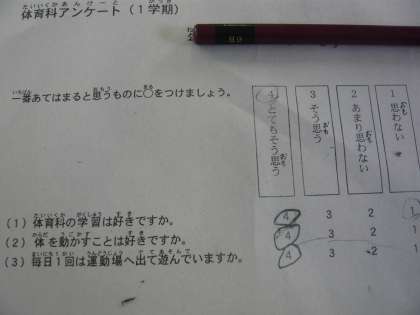 体育科アンケート（１学期）
一番あてはまると思うものに○をつけましょう。
4 とてもそう思う
3 そう思う
2 あまり思わない
1 思わない
（１）体育科の学習は好きですか。 4 3 2 1
（２）体を動かすことは好きですか。 4 3 2 1
（３）毎日１回は運動場へ出て遊んでいますか。 4 3 2 1